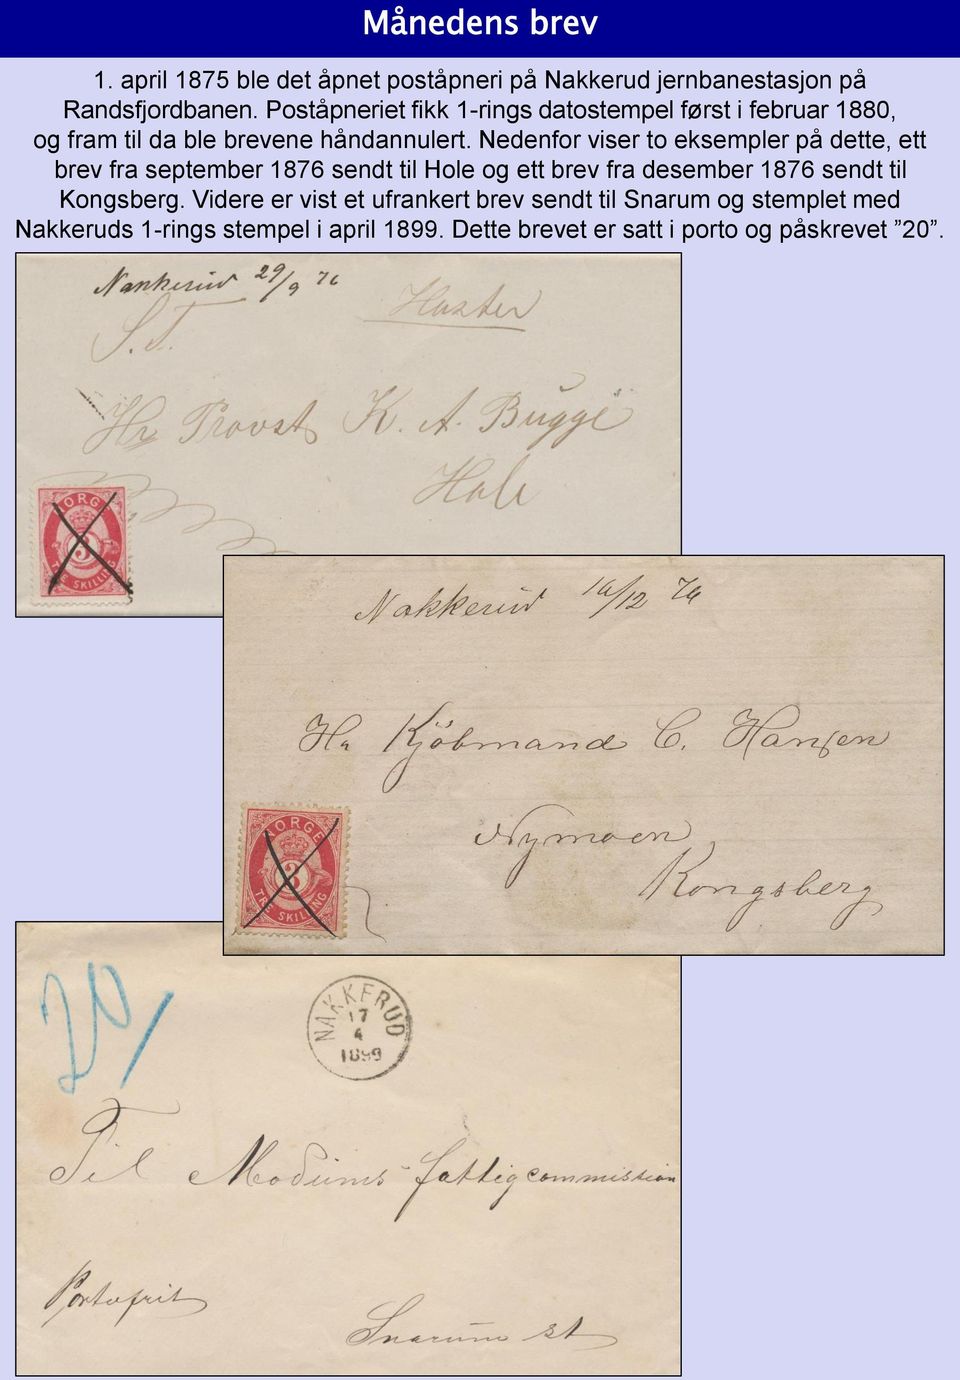 Månedens brev
1. april 1875 ble det åpnet poståpneri på Nakkerud jernbanestasjon på
Randsfjordbanen. Poståpneriet fikk 1-rings datostempel først i februar 1880,
og fram til da ble brevene håndannulert. Nedenfor viser to eksempler på dette, ett
brev fra september 1876 sendt til Hole og ett brev fra desember 1876 sendt til
Kongsberg. Videre er vist et ufrankert brev sendt til Snarum og stemplet med
Nakkeruds 1-rings stempel i april 1899. Dette brevet er satt i porto og påskrevet ”20”.
Nakkerud 29/9 76
S.T.
Hr Provst K. A. Bugge
Hole
NORGE
3
TRE SKILLING
Nakkerud 16/12 76
Hr Kjöbmand C. Hansen
Nymoen
Kongsberg
NORGE
3
TRE SKILLING
20
NAKKERUD
17
4
1899
Til Modums fattigcommission
Portofrit
Snarum st